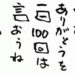 ありがとうを
一日100回は
言おうね